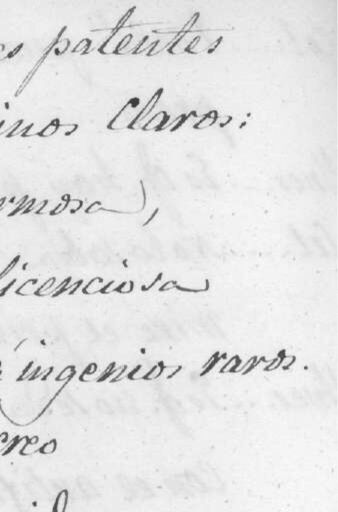 es patentes
inos claros:
rmosa,
licenciosa
ingenios raros.
creo